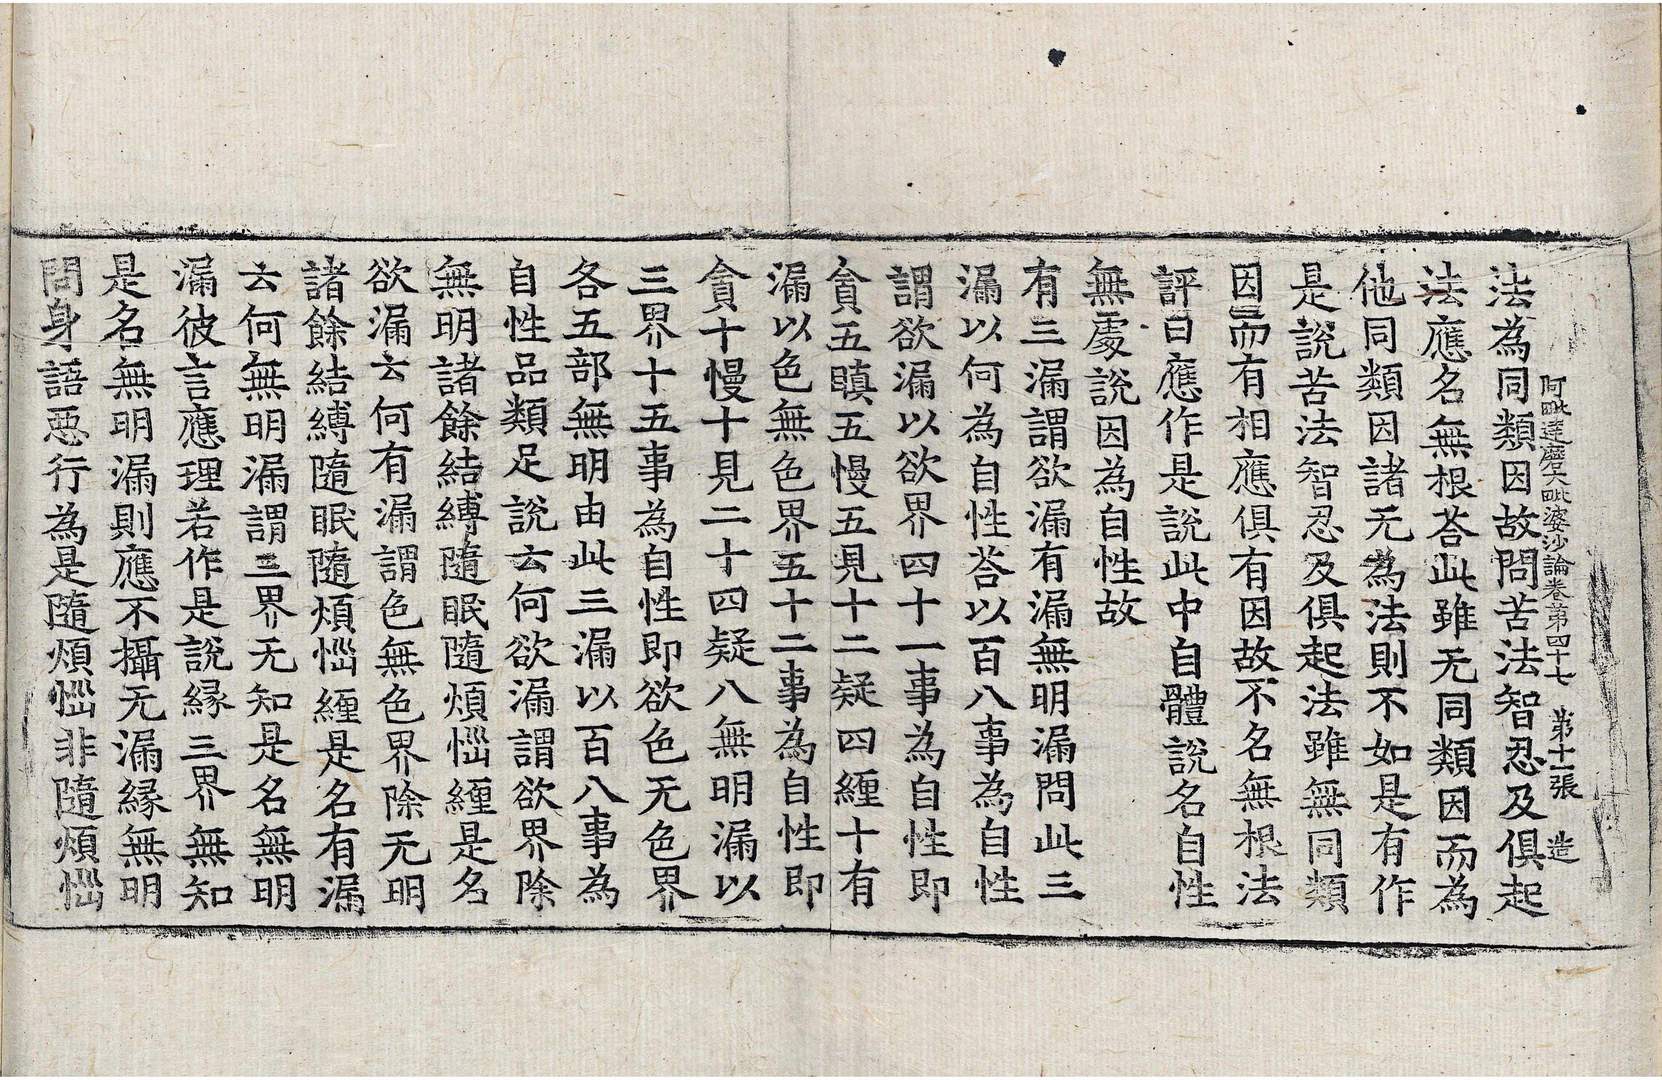 阿毗達磨大毗婆沙論卷第四十七　第十一張　造
法為同類因故問苦法智忍及俱起
法應名無根荅此雖无同類因而為
他同類因諸无為法則不如是有作
是說苦法智忍及俱起法雖無同類
因而有相應俱有因故不名無根法
評曰應作是說此中自體說名自性
無處說因為自性故
有三漏謂欲漏有漏無明漏問此三
漏以何為自性荅以百八事為自性
謂欲漏以欲界四十一事為自性即
貪五瞋五慢五見十二疑四纏十有
漏以色無色界五十二事為自性即
貪十慢十見二十四疑八無明漏以
三界十五事為自性即欲色无色界
各五部無明由此三漏以百八事為
自性品類足說云何欲漏謂欲界除
無明諸餘結縛隨眠隨煩惱纏是名
欲漏云何有漏謂色無色界除无明
諸餘結縛隨眠隨煩惱纏是名有漏
云何無明漏謂三界无知是名無明
漏彼言應理若作是說緣三界無知
是名無明漏則應不攝无漏緣無明
問身語惡行為是隨煩惱非隨煩惱